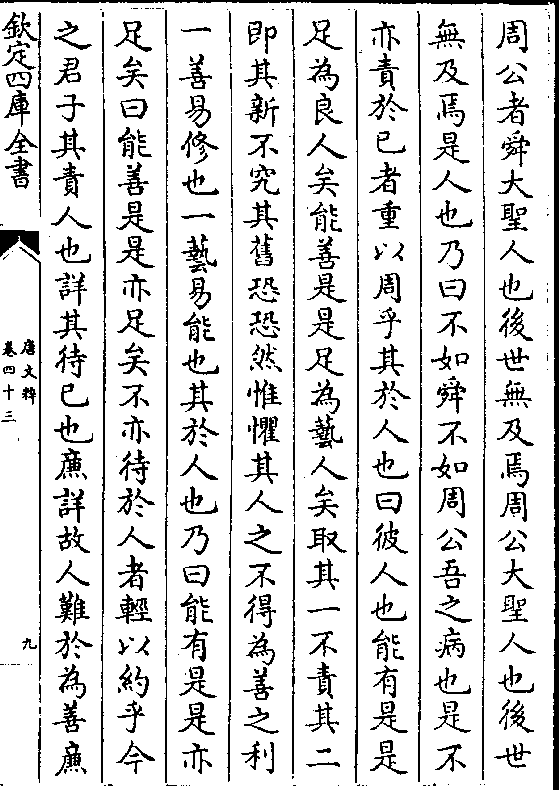 周公者舜大聖人也後世無及焉周公大聖人也後世
無及焉是人也乃曰不如舜不如周公吾之病也是不
亦責於已者重以周乎其於人也曰彼人也能有是是
足為良人矣能善是是足為藝人矣取其一不責其二
即其新不究其舊恐恐然惟懼其人之不得為善之利
一善易修也一藝易能也其於人也乃曰能有是是亦
足矣曰能善是是亦足矣不亦待於人者輕以約乎今
之君子其責人也詳其待已也廉詳故人難於為善廉
欽定四庫全書
唐文粹
卷四十三
九